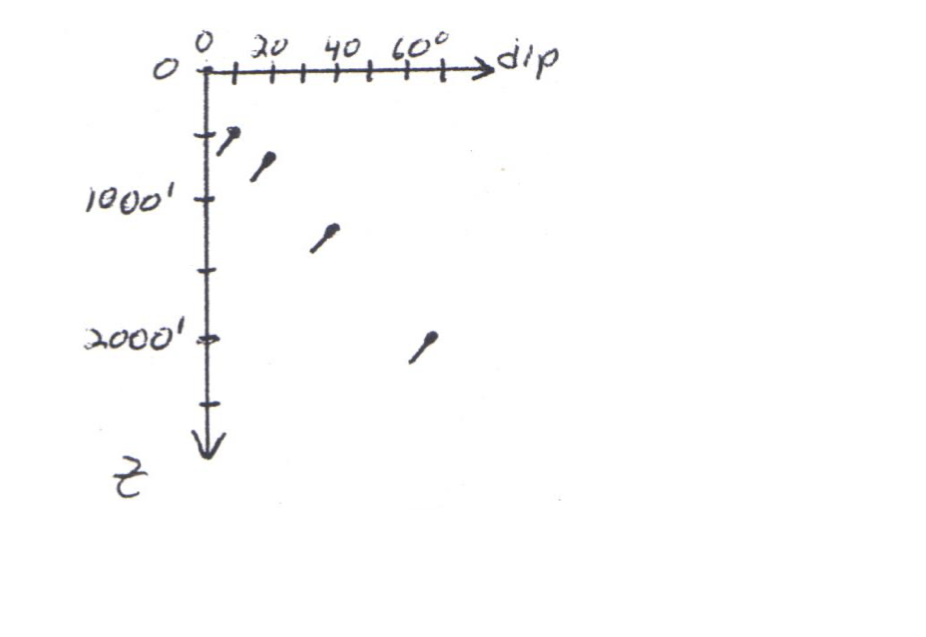 0 20 40 60°
0 dip
1000'
2000'
z